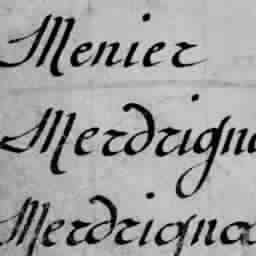 Menier
Merdrigna
Merdrignac